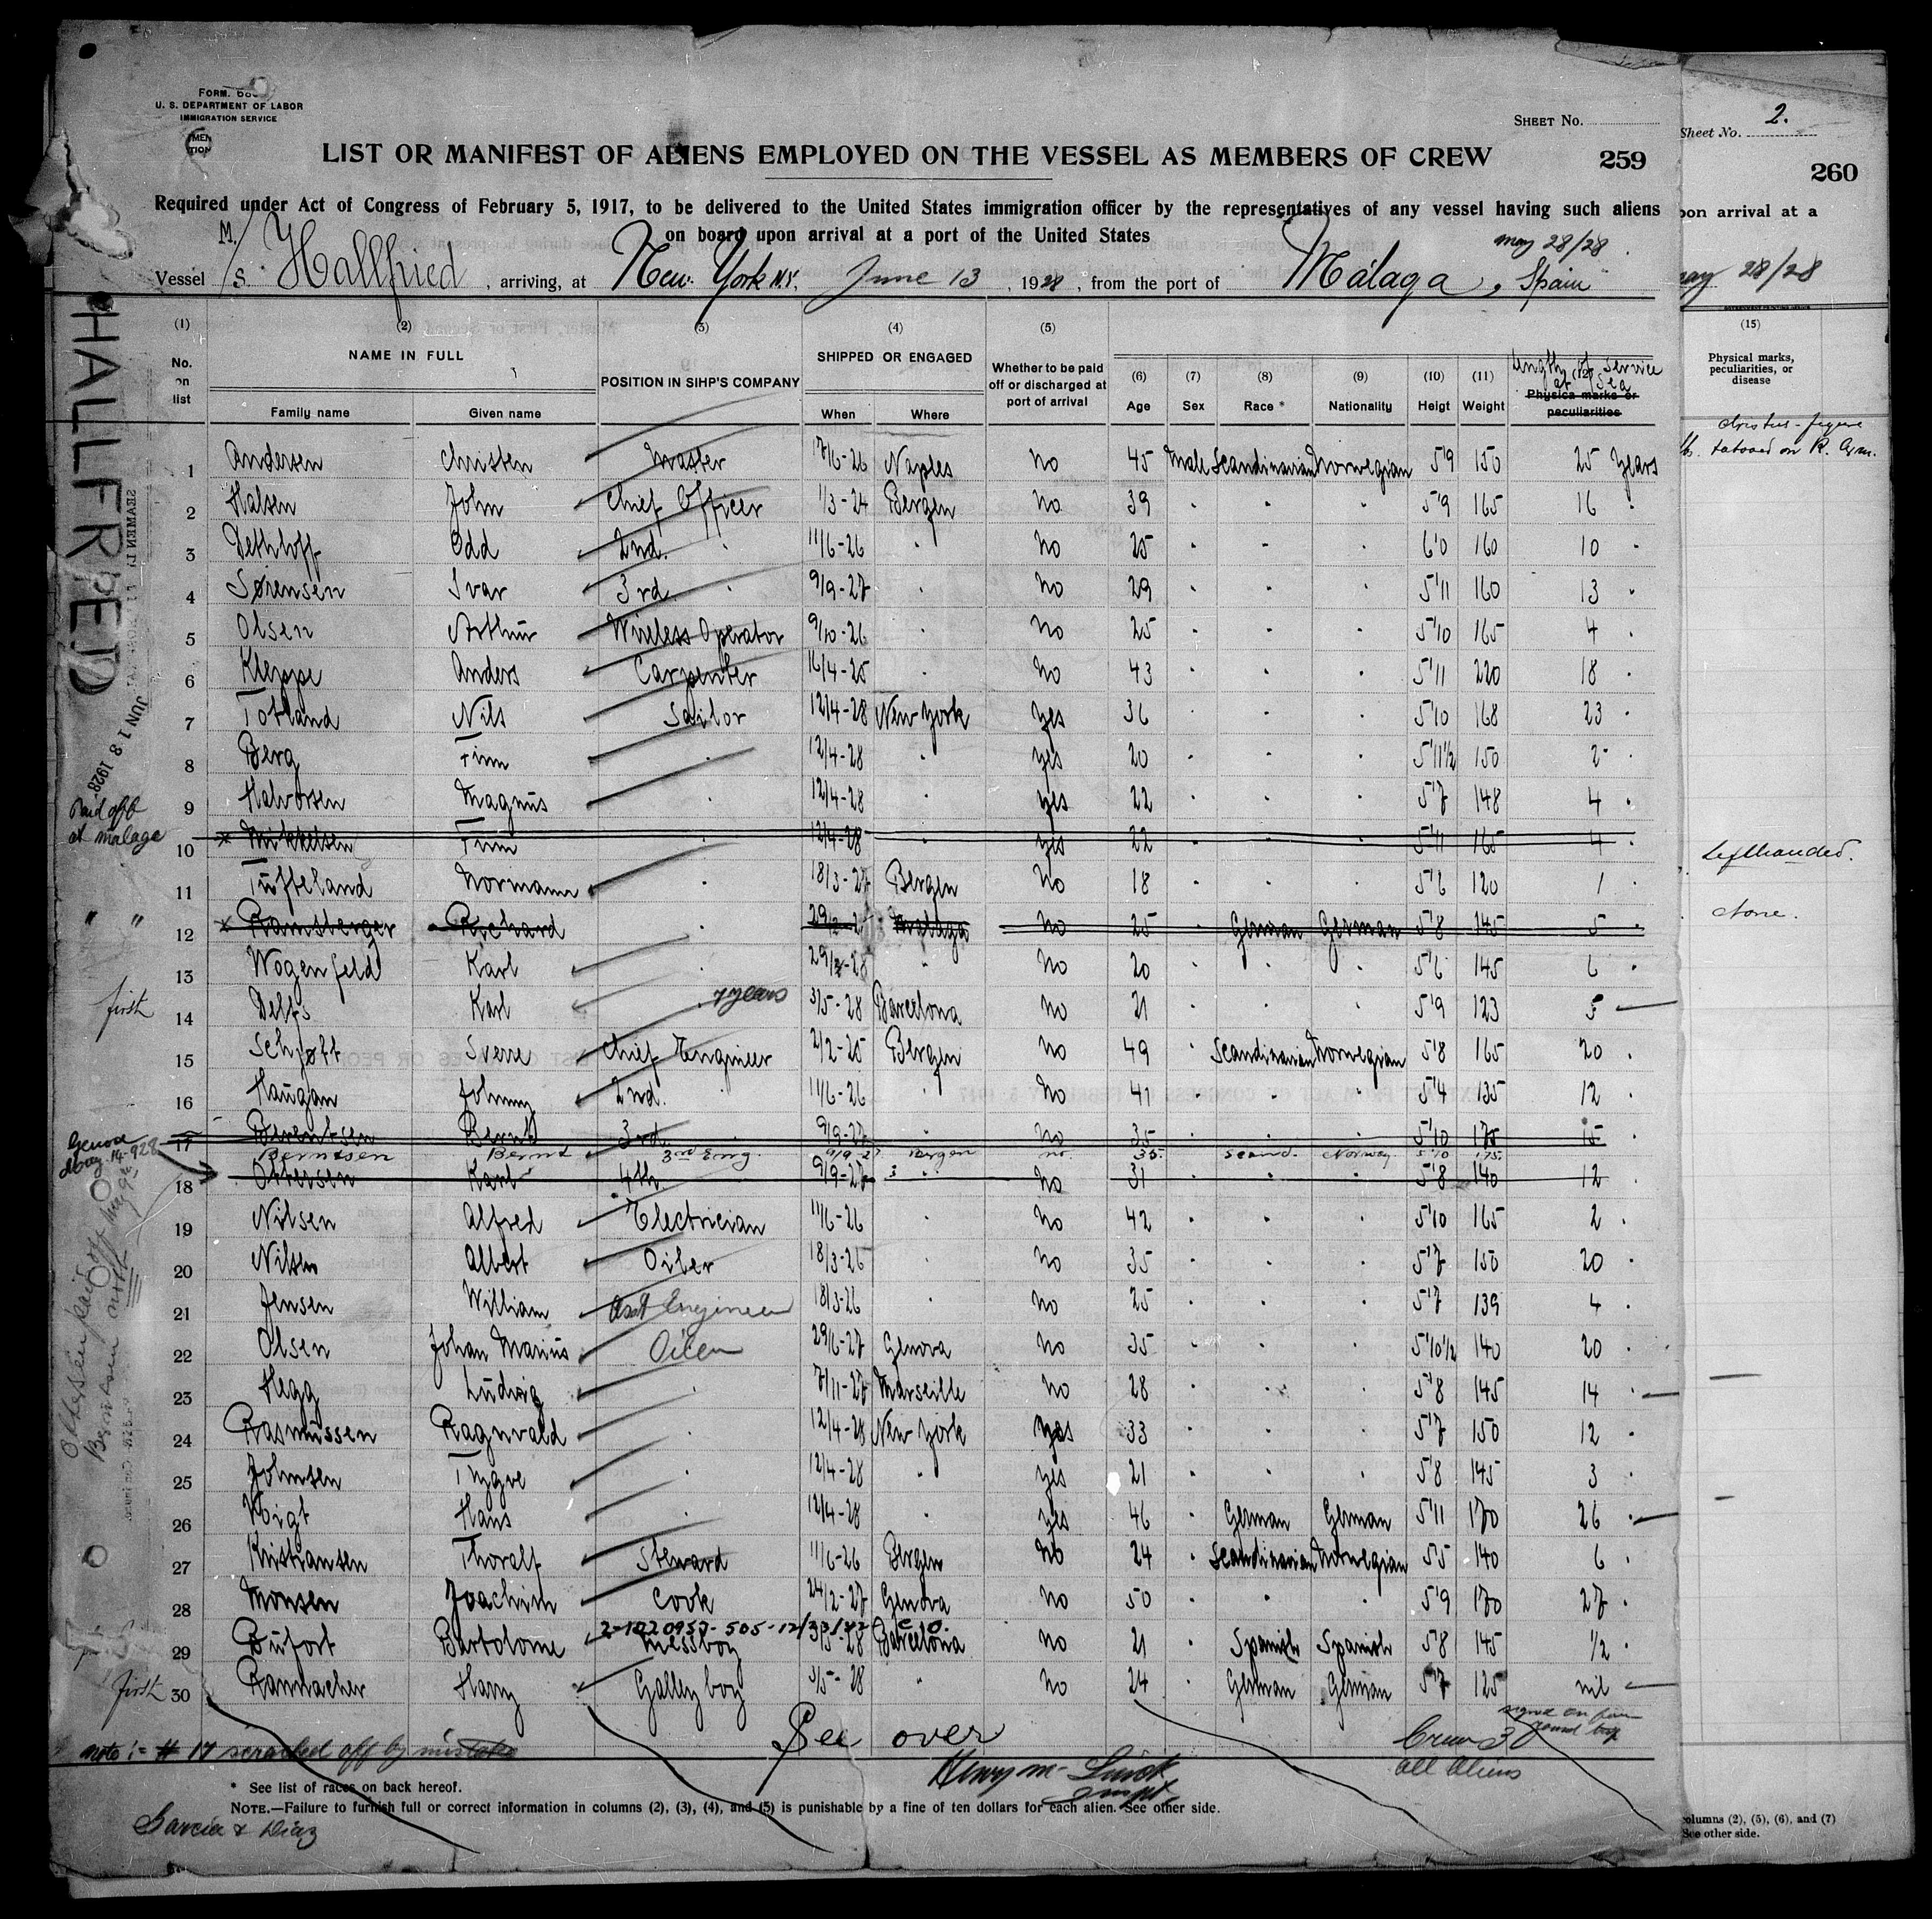 FORM.
U. S. DEPARTMENT OF LABOR
IMMIGRATION SERVICE
SHEET No.
LIST OR MANIFEST OF ALIENS EMPLOYED ON THE VESSEL AS MEMBERS OF CREW
259
Required under Act of Congress of February 5, 1917, to be delivered to the United States immigration officer by the representatives of any vessel having such aliens
on board upon arrival at a port of the United States
may 28/28
Vessel M/S. Hallfried, arriving, at New York N.Y. June 13, 1928, from the port of Málaga, Spain
(1) (2) (3) (4) (5)
No. on list
NAME IN FULL
Family name Given name
POSITION IN SIHP'S COMPANY
SHIPPED OR ENGAGED
When Where
Whether to be paid off or discharged at port of arrival
(6) Age (7) Sex (8) Race * (9) Nationality (10) Heigt (11) Weight (12) Physica marks or peculiarities
length of Service at Sea
1 Andersen Christen Master 7/6-26 Naples No 45 Male Scandinavian Norwegian 5'9 150 25 Years
2 Halsen John Chief Officer 1/3-24 Bergen No 39 " " " 5'9 165 16 "
3 Dethloff Odd 2nd. " 11/6-26 " No 25 " " " 6'0 160 10 "
4 Sørensen Ivar 3rd. " 9/9-27 " No 29 " " " 5'11 160 13 "
5 Olsen Arthur Wireless Operator 9/10-26 " No 25 " " " 5'10 165 4 "
6 Kleppe Anders Carpenter 16/4-25 " No 43 " " " 5'11 220 18 "
7 Totland Nils Sailor 12/4-28 New York Yes 36 " " " 5'10 168 23 "
8 Berg Finn " 12/4-28 " yes 20 " " " 5'11½ 150 2 "
9 Halvorsen Magnus " 12/4-28 " yes 22 " " " 5'7 148 4 "
Paid off at malaga
10 Mikkelsen Finn " 12/4-28 " yes 22 " " " 5'11 165 4 "
11 Tufteland Normann " 18/3-27 Bergen No 18 " " " 5'6 120 1 "
" " 12 Ramsberger Richard " Malaga No 25 " German German 5'8 145 5 "
13 Wogenfeld Karl " 29/2-28 " No 20 " " " 5'6 145 6 "
first 14 Delfs Karl " 7 years 3/5-28 Barcelona No 21 " " " 5'9 123 5
15 Schjøtt Sverre Chief Engineer 2/2-25 Bergen No 49 " Scandinavian Norwegian 5'8 165 20 "
16 Haugan Johnny 2nd. " 11/6-26 " No 41 " " " 5'4 135 12 "
17 Berentsen Bernt 3rd. " 9/9-27 " No 35 " " " 5'10 175 15 "
Berntsen Bernt 3rd Eng. 9/9-27 Bergen no. 35. Scand. Norway 5'10 175
18 Ottersen Karl 4th 9/9-27 " No 31 " " " 5'8 140 12 "
19 Nilsen Alfred Electrician 11/6-26 " No 42 " " " 5'10 165 2 "
20 Nilsen Albert Oiler 18/3-26 " No 35 " " " 5'7 150 20 "
21 Jensen William Asst Engineer 18/3-26 " No 25 " " " 5'7 139 4 "
22 Olsen Johan Marius Oiler 29/6-27 Genova No 35 " " " 5'10½ 140 20 "
23 Hegg Ludvig " 7/11-27 Marseille No 28 " " " 5'8 145 14 "
24 Rasmussen Ragnvald " 12/4-28 New York Yes 33 " " " 5'7 150 12 "
25 Johnsen Trygve " 12/4-28 " yes 21 " " " 5'8 145 3 "
26 Voigt Hans " 12/4-28 " yes 46 " German German 5'11 170 26 "
27 Kristiansen Thoralf Steward 11/6-26 Bergen No 24 " Scandinavian Norwegian 5'5 140 6 "
28 Monsen Joachim Cook 24/2-27 Genova No 50 " " " 5'9 170 27 "
29 Bufort Bartolome Messboy 3/5-28 Barcelona No 21 " Spanish Spanish 5'8 145 ½ "
first 30 Ranmacher Harry Galley boy 3/5-28 " No 24 " German German 5'7 125 nil
See over
Crew 30
all Aliens
note:- # 17 scratched off by mistake
* See list of races on back hereof.
NOTE.—Failure to furnish full or correct information in columns (2), (3), (4), and (5) is punishable by a fine of ten dollars for each alien. See other side.
Garcia & Diaz
HALLFRED
JUN 18 1928
Genova May 14-928
Sheet No. 2.
260
pon arrival at a
may 28/28
(15)
Physical marks, peculiarities, or disease
tatooed on R. Arm.
Lefthanded.
None.
columns (2), (5), (6), and (7)
See other side.